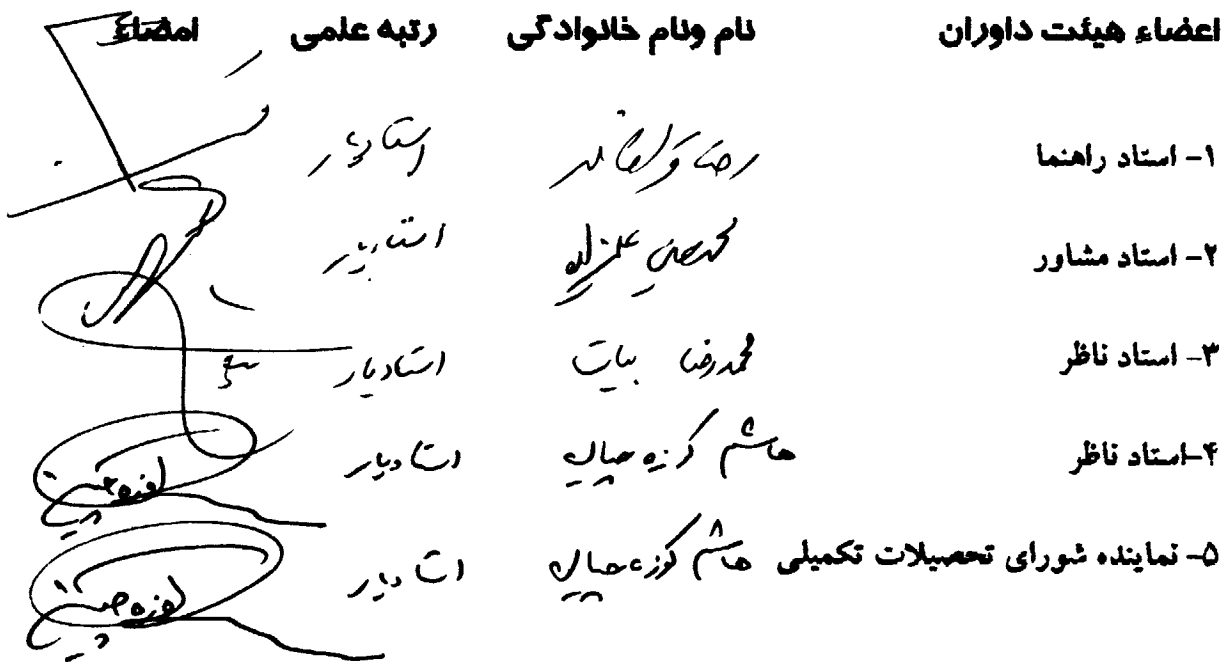 اعضاء هیئت داوران نام ونام خانوادگی رتبه علمی امضاء
۱- استاد راهنما رضا استادیار
۲- استاد مشاور استادیار
۳- استاد ناظر محمدرضا بیات استادیار
۴-استاد ناظر هاشم کوزه چیان استادیار
۵- نماینده شورای تحصیلات تکمیلی هاشم کوزه چیان استادیار